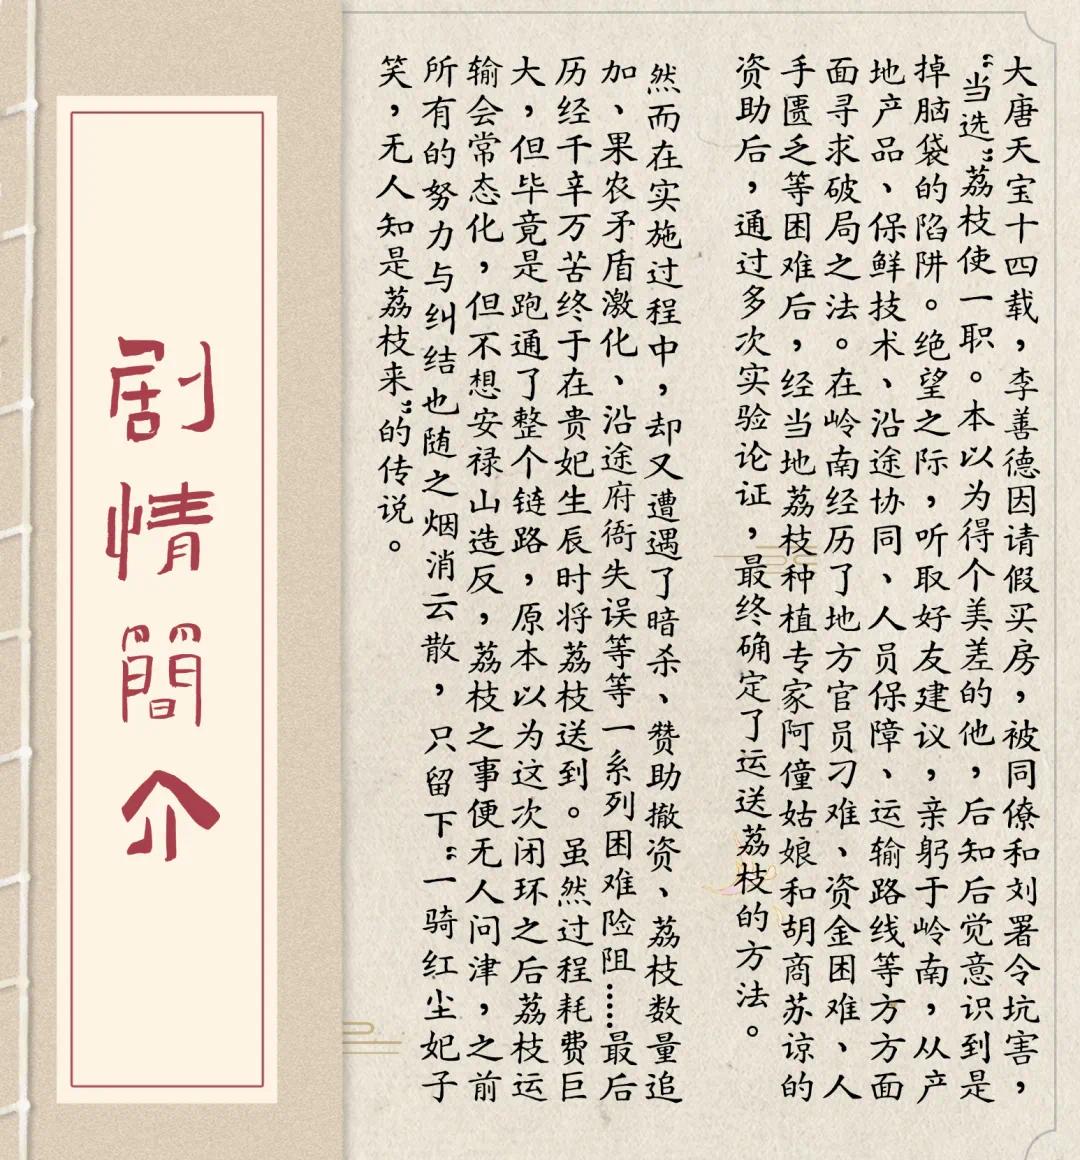 剧情簡介
大唐天宝十四载，李善德因请假买房，被同僚和刘署令坑害，
“当选“荔枝使一职。本以为得个美差的他，后知后觉意识到是
掉脑袋的陷阱。绝望之际，听取好友建议，亲躬于岭南，从产
地产品、保鲜技术、沿途协同、人员保障、运输路线等方方面
面寻求破局之法。在岭南经历了地方官员刁难、资金困难、人
手匮乏等困难后，经当地荔枝种植专家阿僮姑娘和胡商苏谅的
资助后，通过多次实验论证，最终确定了运送荔枝的方法。
然而在实施过程中，却又遭遇了暗杀、赞助撤资、荔枝数量追
加、果农矛盾激化、沿途府衙失误等等一系列困难险阻……最后
历经千辛万苦终于在贵妃生辰时将荔枝送到。虽然过程耗费巨
大，但毕竟是跑通了整个链路，原本以为这次闭环之后荔枝运
输会常态化，但不想安禄山造反，荔枝之事便无人问津，之前
所有的努力与纠结也随之烟消云散，只留下“一骑红尘妃子
笑，无人知是荔枝来“的传说。